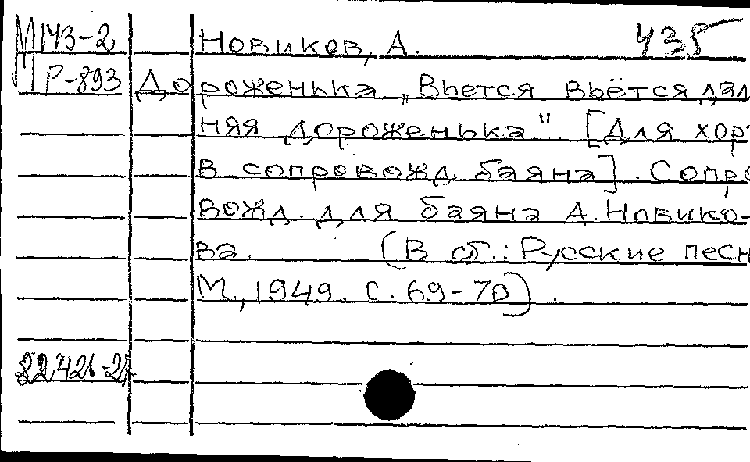 М143-2 Новиков, А. 435
Р-893 Дороженька „Вьется вьётся дал
няя дороженька". [Для хор
в сопровожд. баяна]. Сопро
вожд. для баяна А. Новико-
ва. (В сб.: Русские песн
М., 1949. С. 69-70).